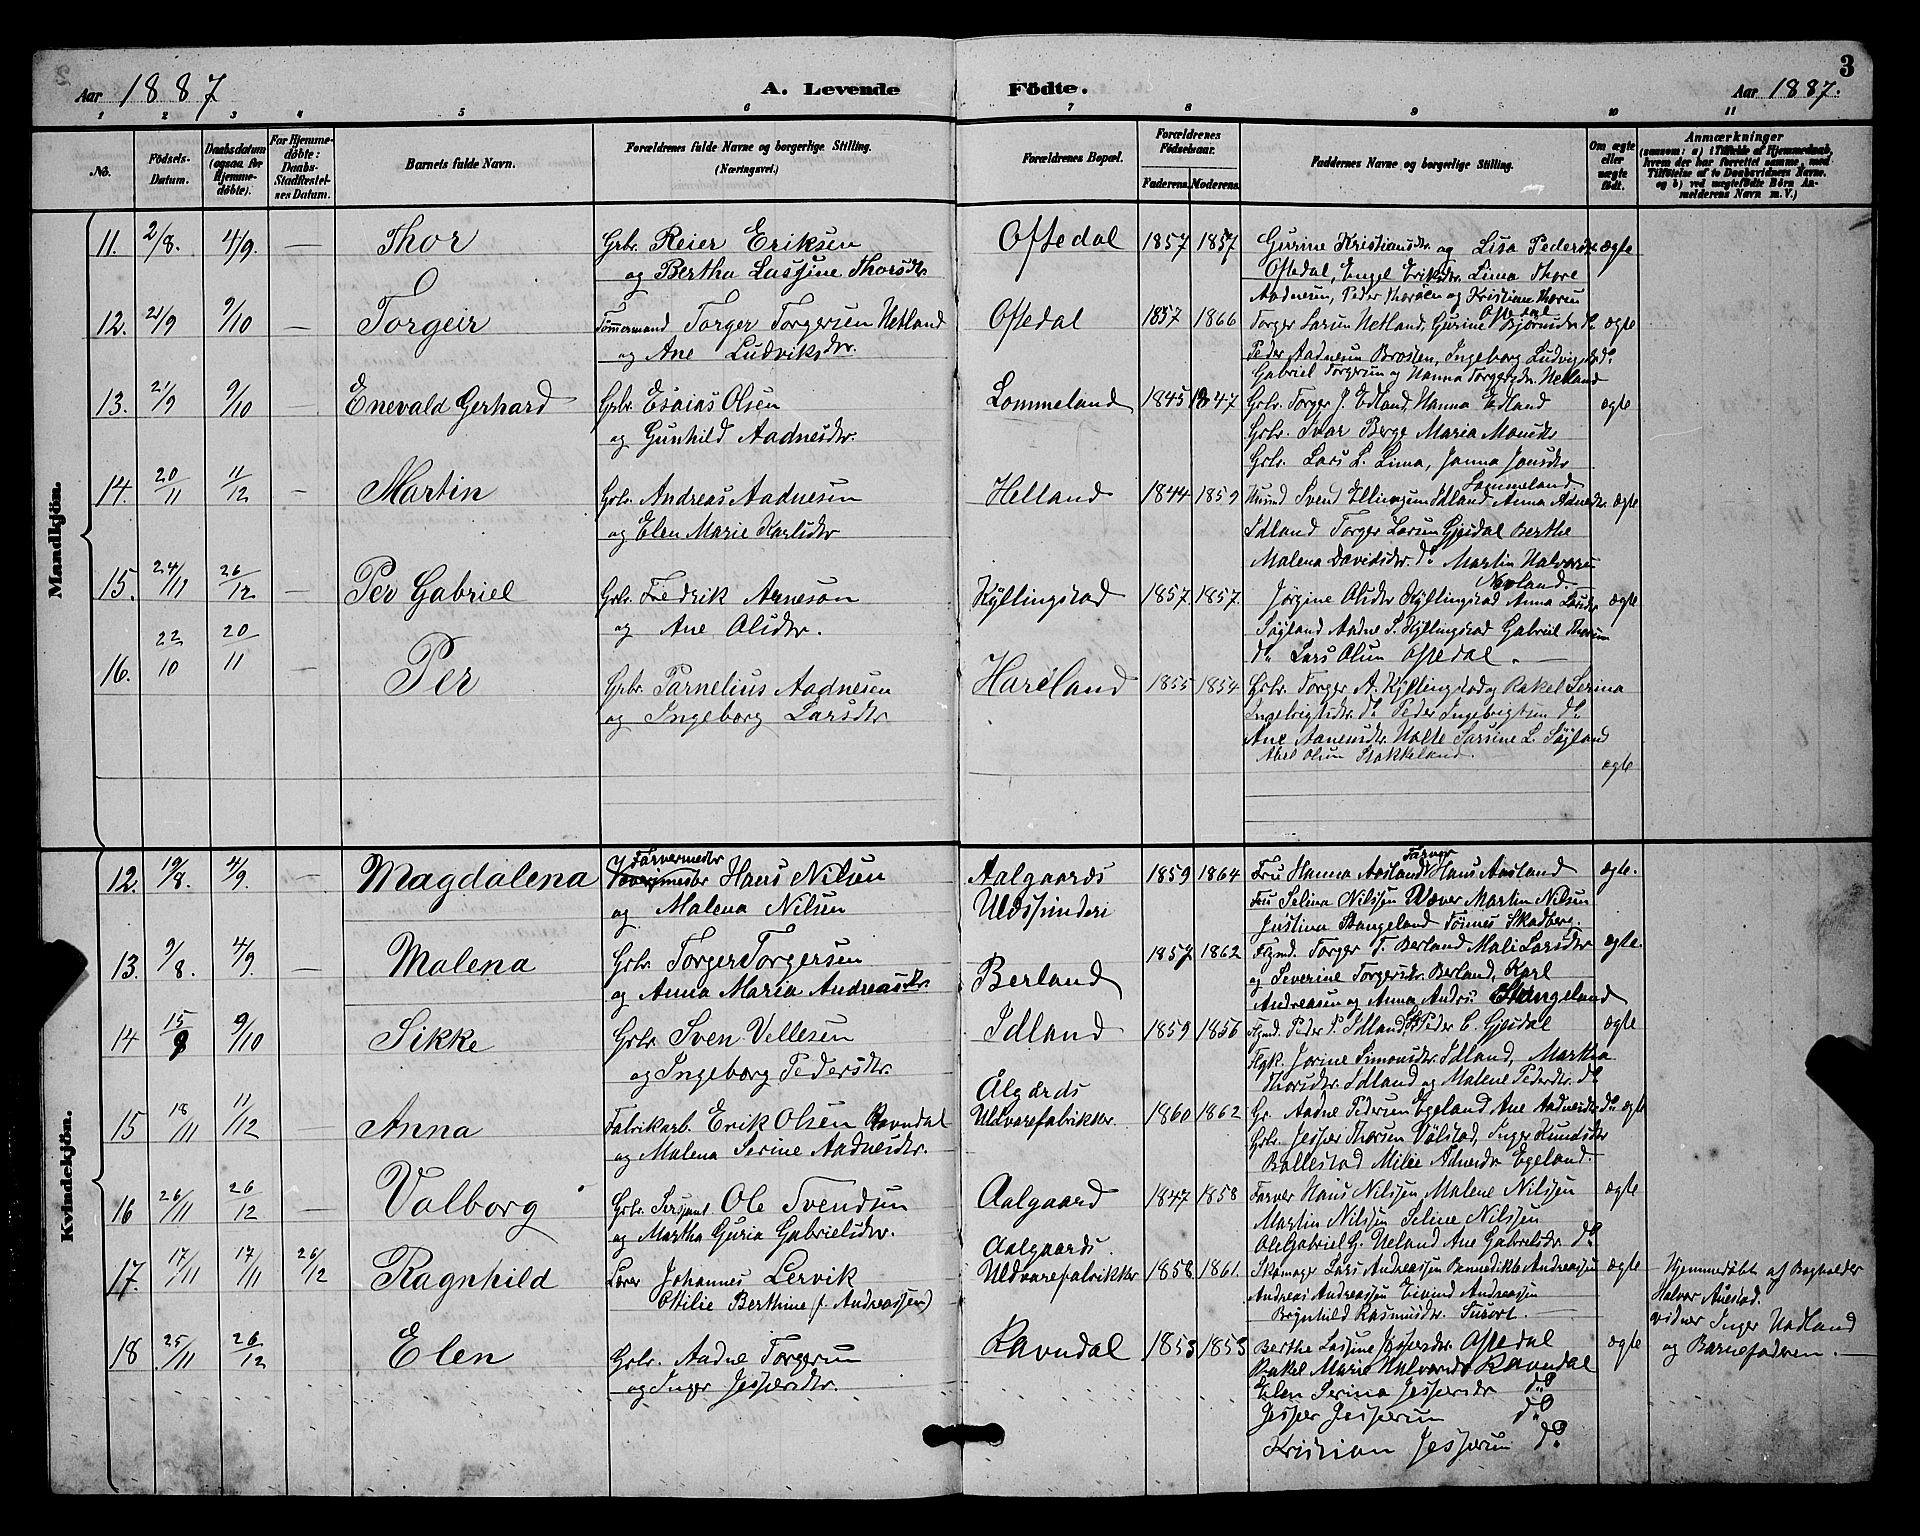 3
Aar 1887 A. Levende Födte. Aar 1887.
1 2 3 4 5 6 7 8 9 10 11
No. Födsels-Datum. Daabsdatum (ogsaa for Hjemmedöbte). For Hjemmedöbte: Daabs-Stadfæstelses Datum. Barnets fulde Navn. Forældrenes fulde Navne og borgerlige Stilling. (Næringsvei.) Forældrenes Bopæl. Forældrenes Födselsaar. Faderens. Moderens. Faddernes Navne og borgerlige Stilling. Om ægte eller uægte födt. Anmærkninger (saasom: a) i Tilfælde af Hjemmedaab, hvem der har forrettet samme, med Tilföielse af to Daabsvidners Navne, og b) ved uægtefödte Börn Anmelderens Navn m. V.)
Mandkjön.
11. 2/8. 4/9. — Thor Grbr. Reier Eriksen Oftedal 1857 1857 Gurine Kristiansdtr og Lisa Pedersdtr ægte
og Bertha Lassine Thorsdtr Oftedal, Engel Eriksdtr. Lima Thore
Aadnesen, Peder Thorsen og Kristian Thorsen
Oftedal
12. 21/9 9/10 — Torgeir Tömermand Torger Torgersen Netland Oftedal 1857 1866 Torger Larsen Netland, Gurine Björnsdtr do ægte
og Ane Ludviksdtr. Peder Aadnesen Brosten, Ingeborg Ludvigsdtr do
Gabriel Torgersen og Hanna Torgersdtr. Netland
13. 21/9 9/10 Enevald Gerhard Grbr. Esaias Olsen Lommeland 1845 1847 Grbr. Torger J. Edland, Hanna Edland ægte
og Gunhild Aadnesdtr. Grbr. Ivar Berge Maria
Grbr. Lars L. Lima, Janna Jonsdtr
Lommeland
14. 20/11 11/12 — Martin Grbr. Andreas Aadnesen Helland 1844 1859 Svend Ellingsen Idland Anna Adnesdtr. ægte
og Elen Marie Karlsdtr Idland Torger Larsen Gjesdal Berthe
Malena Davidsdtr. do Martin Halvorsen
Navland.
15. 24/11 26/12 — Per Gabriel Grbr. Fredrik Arneson Kyllingstad 1857. 1857. Jörgine Olsdtr Kyllingstad Anna Larsdtr ægte
og Ane Olsdtr. Söyland Aadne S. Kyllingstad Gabriel Thorsen
do Lars Olsen Oftedal. —
16. 22/10 20/11 — Per Grbr. Parnelius Aadnesen Hareland 1855 1854 Grbr. Torger A. Kyllingstad og Rakel Serina
og Ingeborg Larsdtr Ingebrigtsdtr. do Peder Ingebrigtsen do
Ane Aanensdtr. Holte Sarsine L. Söyland
Abel Olsen Stokkeland. ægte
Kvindekjön.
12. 19/8. 4/9. — Magdalena Farvermester Hans Nilsen Aalgaards 1859 1864 Fru Hanna Aasland Farver Hans Aasland ægte.
og Malena Nilsen Uldspinderi Fru Selina Nilssen Væver Martin Nilsen
Justina Stangeland Tönnes Skadberg.
13. 9/8. 4/9. — Malena Grbr. Torger Torgersen Berland 1857 1862 Ugmd. Torger T. Berland Mali Larsdtr ægte.
og Anna Maria Andreasdtr. og Severine Torgersdtr. Berland, Karl
Andreasen og Anna Andrs. Stangeland
14 15/9 9/10 Sikke Grbr. Sven Vellesen Idland 1859 1856 Ugmd. Peder P. Idland, Peder C. Gjesdal ægte
og Ingeborg Pedersdtr. Pgk. Jorine Simonsdtr. Idland, Martha
Thorsdtr. Idland og Malene Pedersdtr. do
15 18/11 11/12 Anna Fabrikarb. Erik Olsen Ravndal Algards Uldvarefabrikker 1860 1862 Gr. Aadne Pedersen Egeland Ane Aadnesdtr do ægte
og Malena Serine Aadnesdtr. Grbr. Jesper Thorsen Völstad, Inger Knudsdtr
Ballestad Milie Adnesdtr Egeland.
16 26/11 26/12 — Valborg Grbr. Sersjant Ole Svendsen Aalgaard 1847 1858 Farver Hans Nilssen Malene Nilssen ægte
og Martha Guria Gabrielsdtr. Martin Nilssen Seline Nilssen
Ole Gabriel G. Ueland Ane Gabrielsdtr do
17. 17/11 17/11 26/12 Ragnhild Johannes Lervik Aalgaards. Uldvarefabrikker 1858 1861. Skomager Lars Andreassen Bennedikte Andreassen ægte Hjemmedöbt af Bogholder
Ottilie Berthine (f. Andreassen) Andreas Andreassen Eivind Andreassen Halvor Auestad.
Brynhild Rasmusdtr. — vidner Inger Uadland
og Barnefaderen. —
18 25/11 26/12 Elen Grbr. Aadne Torgersen Ravndal 1853 1853 Berthe Lassine Jespersdtr Oftedal ægte
og Inger Jespersdtr. Rakel Marie Halvorsdtr Ravndal
Elen Serina Jespersdtr do
Jesper Jespersen do
Kristian Jespersen do